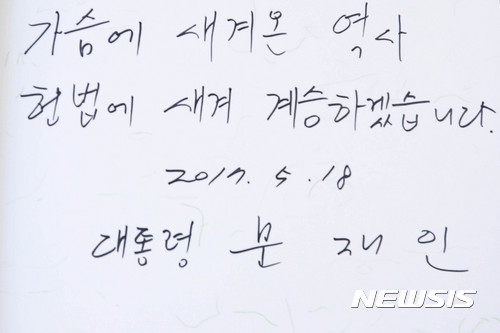 가슴에 새겨온 역사
헌법에 새겨 계승하겠습니다.
2017. 5. 18
대통령 문 재 인
NEWSIS